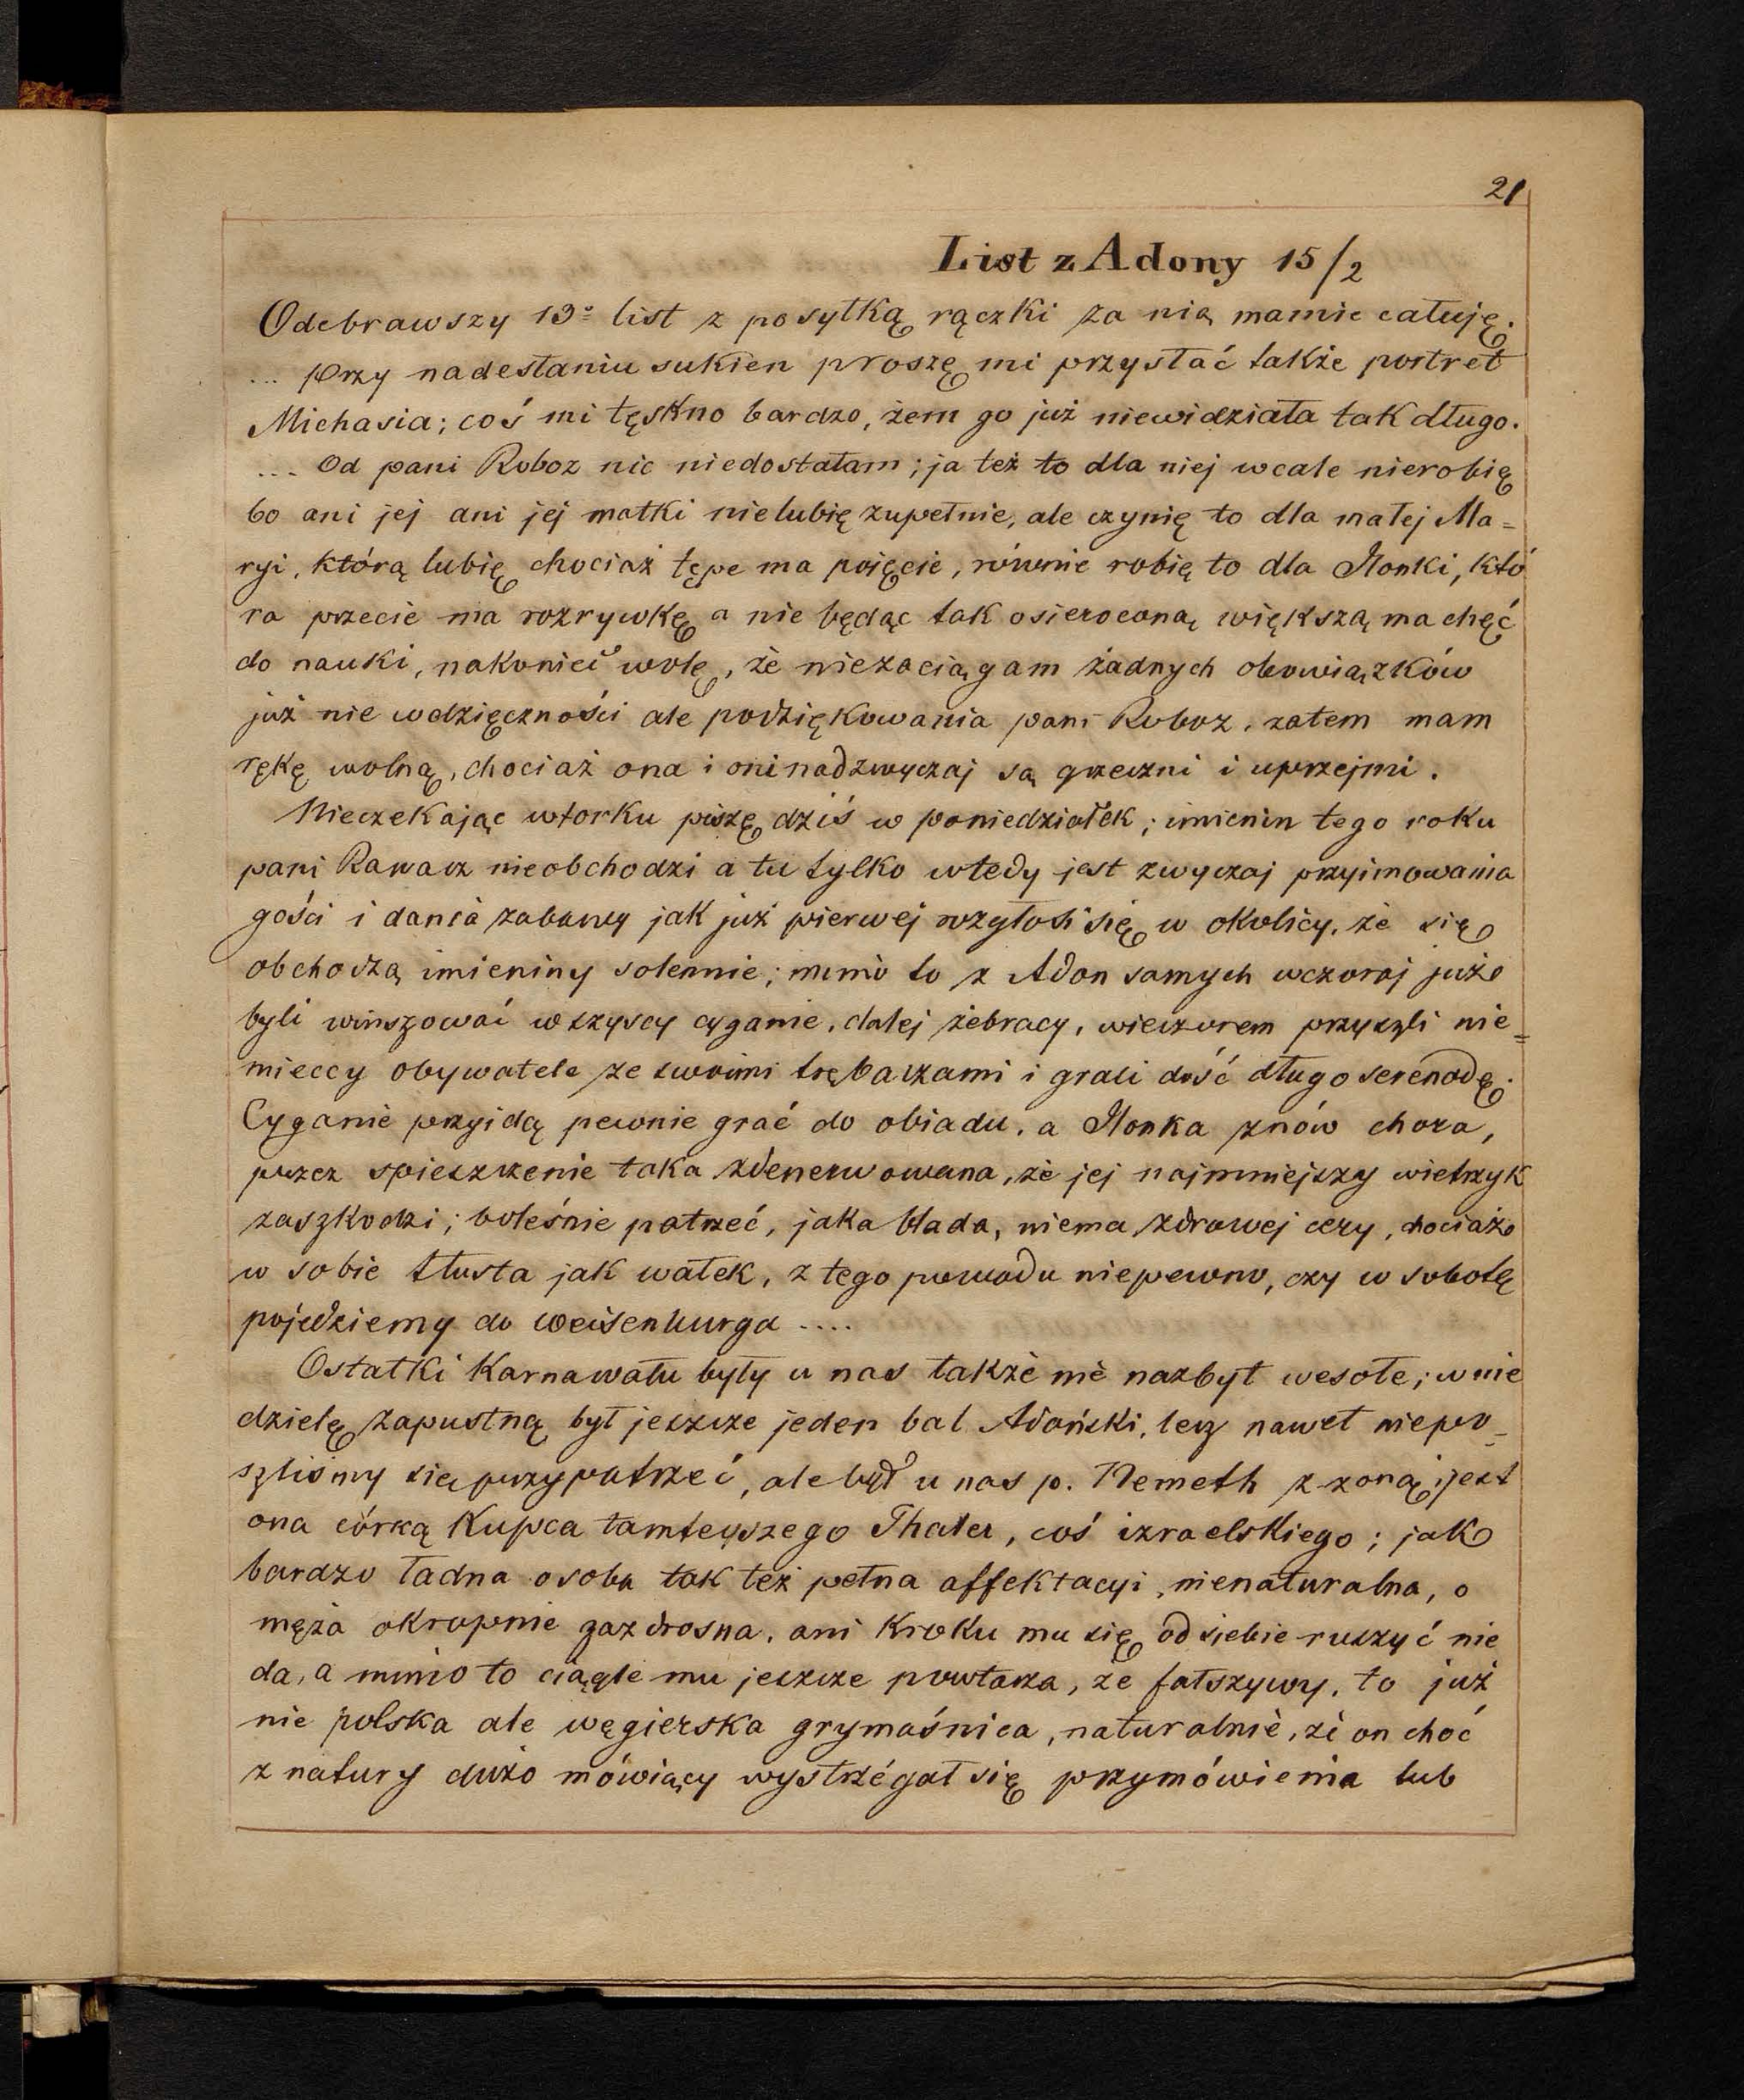 21
List z Adony 15/2
Odebrawszy 13º list z posyłką rączki za nią mamie całuję.
... przy nadesłaniu sukien proszę mi przysłać także portret
Michasia; coś mi tęskno bardzo, żem go już niewidziała tak długo.
... Od pani Roboz nic niedostałam; ja też to dla niej wcale nierobię
bo ani jej ani jej matki nielubię zupełnie, ale czynię to dla małej Ma=
ryi, którą lubię chociaż tępe ma pojęcie, równie robię to dla Ilonki, któ
ra przecie ma rozrywkę a nie będąc tak osieroconą większą ma chęć
do nauki, nakoniec wolę, że niezaciągam żadnych obowiązków
już nie wdzięczności ale podziękowania pani Roboz, zatem mam
rękę wolną, chociaż ona i oni nadzwyczaj są grzeczni i uprzejmi.
Nieczekając wtorku piszę dziś w poniedziałek; imienin tego roku
pani Ravasz nieobchodzi a tu tylko wtedy jest zwyczaj przyimowania
gości i dania zabawy jak już pierwej rozgłosi się w okolicy, że się
obchodzą imieniny solennie; mimo to z Adon samych wczoraj już
byli winszować wszyscy cyganie, dalej żebracy, wieczorem przyszli nie=
mieccy obywatele ze swoimi trębaczami i grali dość długo serenadę.
Cyganie przyidą pewnie grać do obiadu, a Ilonka znów chora,
przez spieszczenie taka zdenerwowana, że jej najmniejszy wietrzyk
zaszkodzi; boleśnie patrzeć, jaka blada, niema zdrowej cery, chociaż
w sobie tłusta jak wałek, z tego powodu niepewno, czy w sobotę
pojedziemy do Weisenburga ....
Ostatki Karnawału były u nas także nie nazbyt wesołe; w nie
dzielę zapustną był jeszcze jeden bal Adoński, lecz nawet niepo=
szliśmy się przypatrzeć, ale był u nas p. Nemeth z żoną; jest
ona córką Kupca tamtejszego Thaler, coś izraelskiego; jak
bardzo ładna osoba tak też pełna affektacyi, nienaturalna, o
męża okropnie zazdrosna, ani kroku mu się od siebie ruszyć nie
da, a mimo to ciągle mu jeszcze powtarza, że fałszywy, to już
nie polska ale węgierska grymaśnica, naturalnie, że on choć
z natury dużo mówiący wystrzégał się przymówienia lub